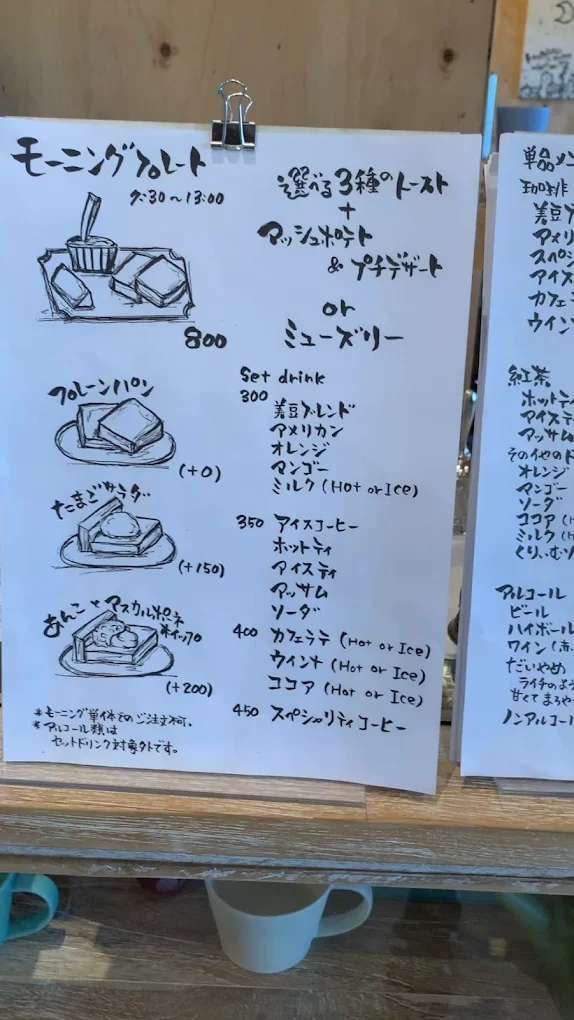 モーニングプレート
7:30〜13:00
選べる3種のトースト
+
マッシュポテト
& プチデザート
or
ミューズリー
800
プレーンパン
(+0)
たまごサラダ
(+150)
あんことマスカルポーネ
ホイップ
(+200)
*モーニング単体でのご注文不可。
*アルコール類は
セットドリンク対象外です。
Set drink
300
美豆ブレンド
アメリカン
オレンジ
マンゴー
ミルク (Hot or Ice)
350 アイスコーヒー
ホットティ
アイスティ
アッサム
ソーダ
400 カフェラテ (Hot or Ice)
ウインナ (Hot or Ice)
ココア (Hot or Ice)
450 スペシャリティコーヒー
単品メニ
珈琲
美豆ブ
アメリ
スペシ
アイス
カフェラ
ウイン
紅茶
ホットティ
アイステ
アッサム
その他のド
オレンジ
マンゴー
ソーダ
ココア (H
ミルク (H
くりぃむソ
アルコール
ビール
ハイボール
ワイン (赤
だいやめ
ライチのよう
甘くてまろや
ノンアルコール